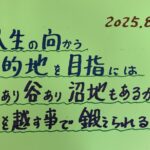 2025.8
人生の向かう
的地を目指には
あり谷あり沼地もあるか
を越す事で鍛えられる